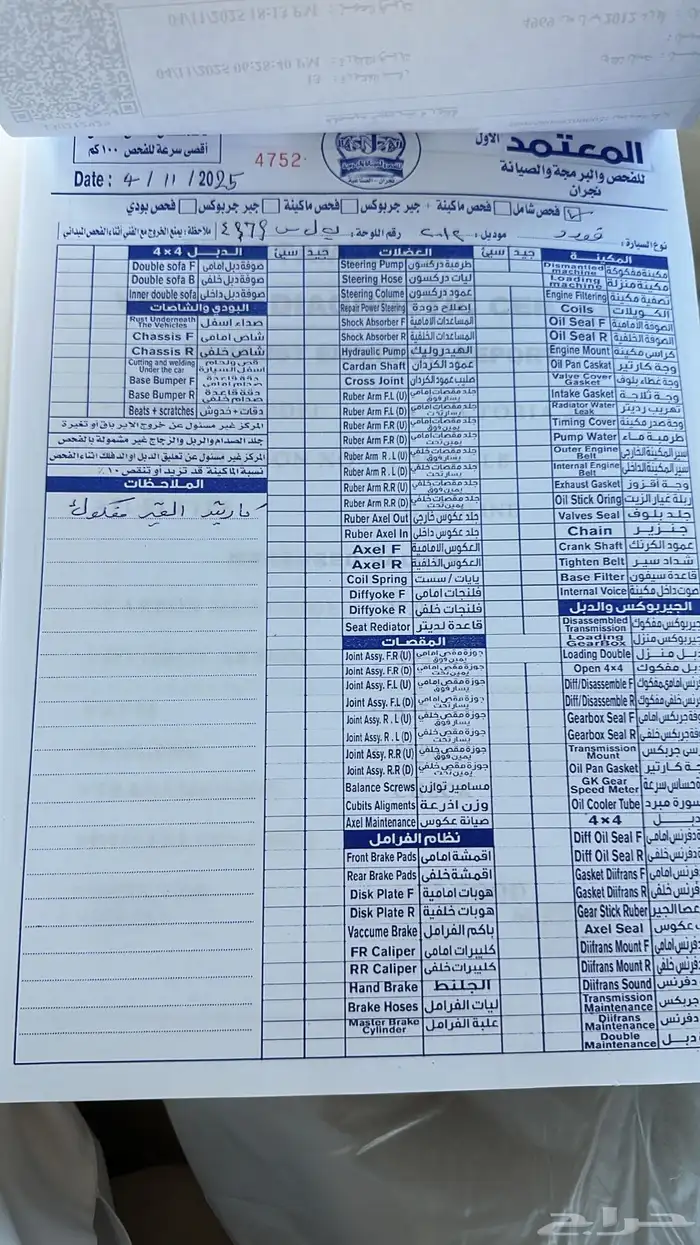 04/11/2025 18:13 PM
04/11/2025 06:28:40 PM
المعتمد الأول
للفحص والبرمجة والصيانة
نجران
أقصى سرعة للفحص ١٠٠ كم
4752
Date : 4 / 11 / 2025
فحص شامل
فحص ماكينة + جير جربوكس
فحص ماكينة
جير جربوكس
فحص بودي
نوع السيارة : فورد موديل: ٢٠١٢ رقم اللوحة: ملاحظة : يمنع الخروج مع الفني أثناء الفحص الميداني
المكينة
جيد
سيئ
Dismantled machine مكينة مفكوكة
Loading machine مكينة منزلة
Engine Filtering تصفية مكينة
Coils الكويلات
Oil Seal F الصوفة الأمامية
Oil Seal R الصوفة الخلفية
Engine Mount كراسي مكينة
Oil Pan Caskat وجة كارتير
Valve Cover Gasket وجة غطاء بلوف
Intake Gasket وجة ثلاجة
Radiator Water Leak تهريب رديتر
Timing Cover وجة صدر مكينة
Pump Water طرمبة ماء
Outer Engine Belt سير المكينة الخارجي
Internal Engine Belt سير المكينة الداخلي
Exhaust Gasket وجة اقزوز
Oil Stick Oring ربلة عيار الزيت
Valves Seal جلد بلوف
Chain جنزير
Crank Shaft عمود الكرنك
Tighten Belt شداد سير
Base Filter قاعدة سيفون
Internal Voice صوت داخل مكينة
الجيربوكس والدبل
Disassembled Transmission جيربوكس مفكوك
Loading GearBox جيربوكس منزل
Loading Double دبل منزل
Open 4×4 دبل مفكوك
Diff/Disassemble F
Diff/Disassemble R
Gearbox Seal F
Gearbox Seal R
Transmission Mount
Oil Pan Gasket
GK Gear Speed Meter
Oil Cooler Tube
4×4 دبل
Diff Oil Seal F
Diff Oil Seal R
Gasket Diifrans F
Gasket Diifrans R
Gear Stick Ruber
Axel Seal
Diifrans Mount F
Diifrans Mount R
Diifrans Sound
Transmission Maintenance
Diifrans Maintenance
Double Maintenance
العضلات
جيد
سيئ
Steering Pump طرمبة دركسون
Steering Hose ليات دركسون
Steering Colume عمود دركسون
Repair Power Steering إصلاح دودة
Shock Absorber F المساعدات الأمامية
Shock Absorber R المساعدات الخلفية
Hydraulic Pump الهيدروليك
Cardan Shaft عمود الكردان
Cross Joint صليب عمود الكردان
Ruber Arm F.L (U) جلد مقصات أمامي يسار فوق
Ruber Arm F.L (D) جلد مقصات أمامي يسار تحت
Ruber Arm F.R (U) جلد مقصات أمامي يمين فوق
Ruber Arm F.R (D) جلد مقصات أمامي يمين تحت
Ruber Arm R . L (U) جلد مقصات خلفي يسار فوق
Ruber Arm R . L (D) جلد مقصات خلفي يسار تحت
Ruber Arm R.R (U) جلد مقصات خلفي يمين فوق
Ruber Arm R.R (D) جلد مقصات خلفي يمين تحت
Ruber Axel Out جلد عكوس خارجي
Ruber Axel In جلد عكوس داخلي
Axel F العكوس الأمامية
Axel R العكوس الخلفية
Coil Spring يايات / سست
Diffyoke F فلنجات أمامي
Diffyoke R فلنجات خلفي
Seat Rediator قاعدة لديتر
المقصات
Joint Assy. F.R (U) جوزة مقص أمامي يمين فوق
Joint Assy. F.R (D) جوزة مقص أمامي يمين تحت
Joint Assy. F.L (U) جوزة مقص أمامي يسار فوق
Joint Assy. F.L (D) جوزة مقص أمامي يسار تحت
Joint Assy. R . L (U) جوزة مقص خلفي يسار فوق
Joint Assy. R . L (D) جوزة مقص خلفي يسار تحت
Joint Assy. R.R (U) جوزة مقص خلفي يمين فوق
Joint Assy. R.R (D) جوزة مقص خلفي يمين تحت
Balance Screws مسامير توازن
Cubits Aligments وزن اذرعة
Axel Maintenance صيانة عكوس
نظام الفرامل
Front Brake Pads اقمشة امامي
Rear Brake Pads اقمشة خلفي
Disk Plate F هوبات امامية
Disk Plate R هوبات خلفية
Vaccume Brake باكم الفرامل
FR Caliper كليبرات امامي
RR Caliper كليبرات خلفي
Hand Brake الجلنط
Brake Hoses ليات الفرامل
Master Brake Cylinder علبة الفرامل
الدبل 4×4
جيد
سيئ
Double sofa F صوفة دبل امامي
Double sofa B صوفة دبل خلفي
Inner double sofa صوفة دبل داخلي
البودي والشاصات
Rust Underneath The Vehicles صداء اسفل
Chassis F شاص امامي
Chassis R شاص خلفي
Cutting and welding Under the car قص ولحام اسفل السيارة
Base Bumper F دقة قاعدة صدام امامي
Base Bumper R دقة قاعدة صدام خلفي
Beats + scratches دقات + خدوش
المركز غير مسئول عن خروج الابر باق أو تغيرة
جلد الصدام والربل والزجاج غير مشمولة بالفحص
المركز غير مسئول عن تعليق الدبل او الدفلك اثناء الفحص
نسبة الماكينة قد تزيد أو تنقص ١٠٪
الملاحظات
كارتير القير مفكوك
حراج